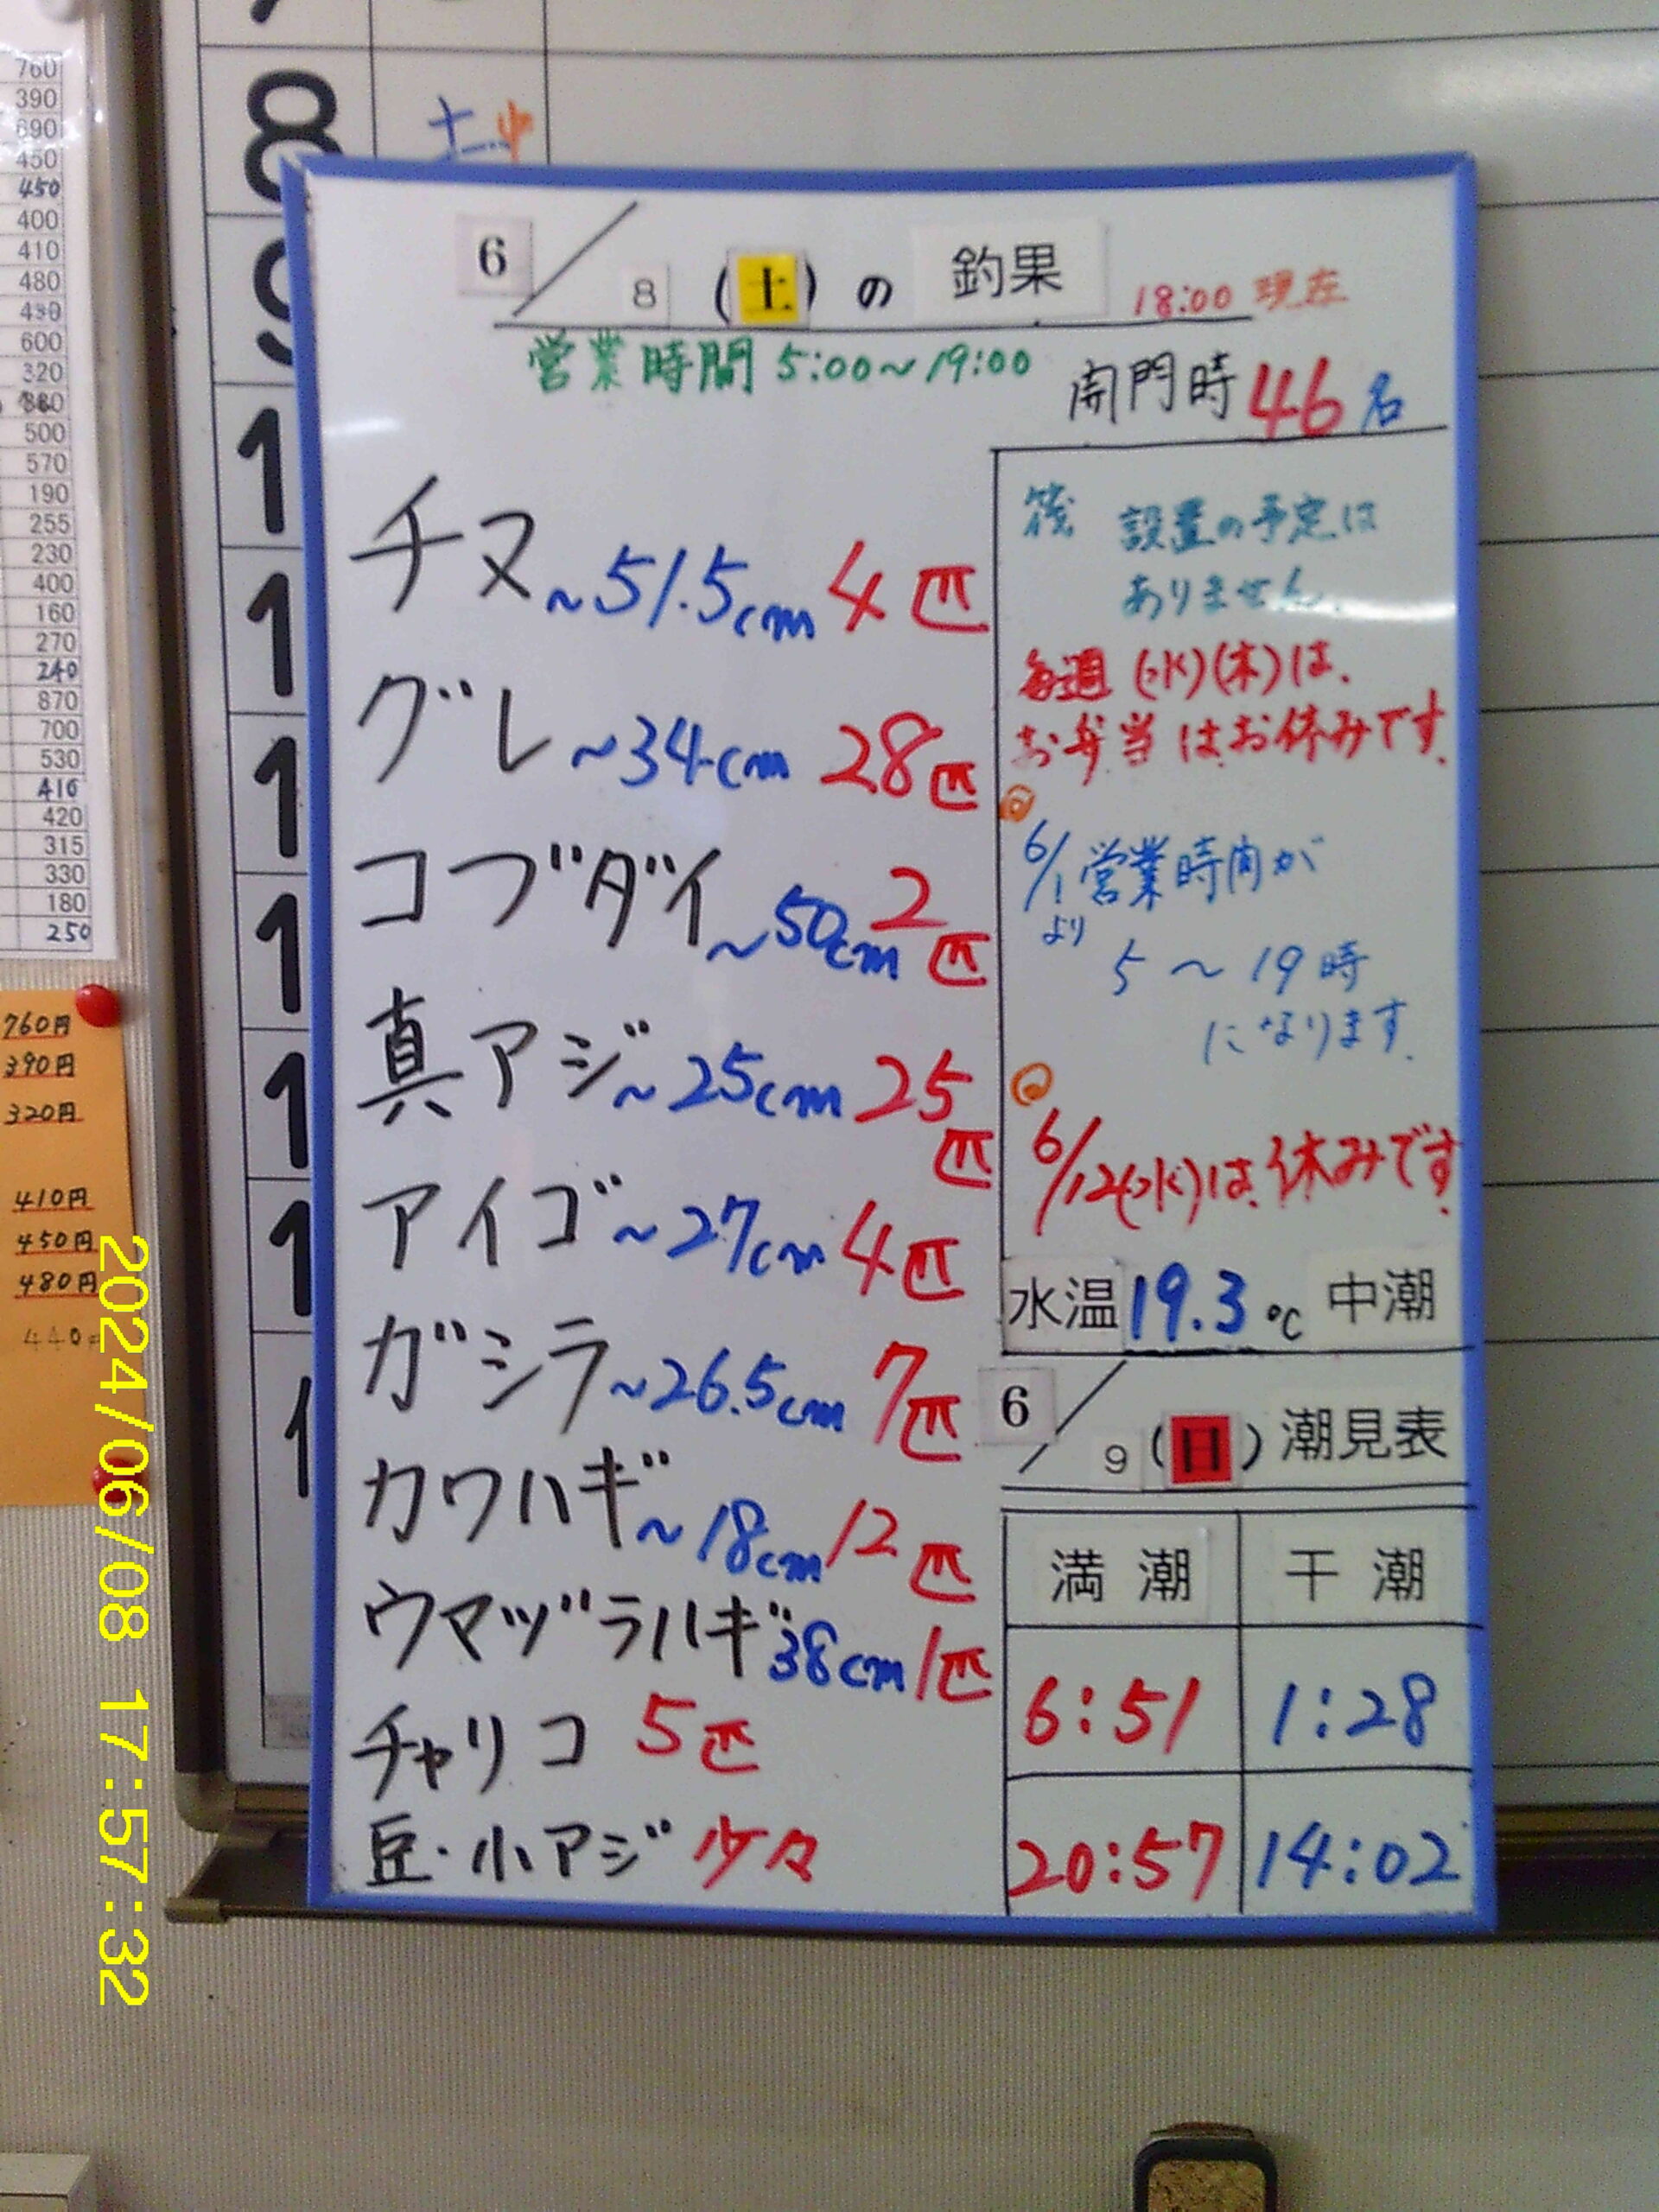 760
390
690
450
450
400
410
480
490
600
320
500
570
190
255
230
400
160
270
240
870
700
530
416
420
315
330
180
250
760円
390円
320円
410円
450円
480円
440円
8
土 中
9
1
1
1
1
1
1
1
6/8 (土) の 釣果 18:00 現在
営業時間 5:00～19:00
開門時 46名
チヌ～51.5cm 4匹
グレ～34cm 28匹
コブダイ～50cm 2匹
真アジ～25cm 25匹
アイゴ～27cm 4匹
ガシラ～26.5cm 7匹
カワハギ～18cm 12匹
ウマヅラハギ38cm 1匹
チャリコ 5匹
豆・小アジ 少々
筏 設置の予定は
ありません.
毎週(水)(木)は、
お弁当はお休みです.
6/1より営業時間が
5～19時
になります.
6/12(水)は、休みです.
水温 19.3℃ 中潮
6/9(日)潮見表
満潮 干潮
6:51 1:28
20:57 14:02
2024/06/08 17:57:32